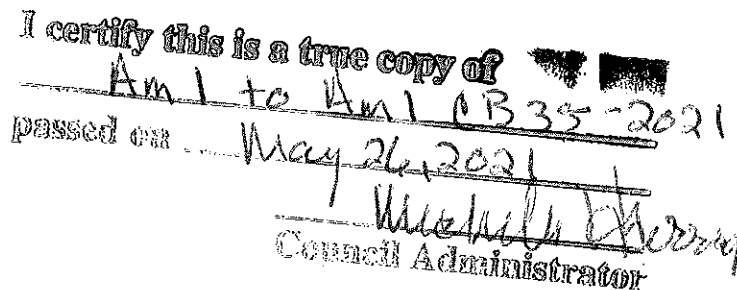 I certify this is a true copy of
Am 1 to Am 1 CB35-2021
passed on May 26, 2021
Council Administrator